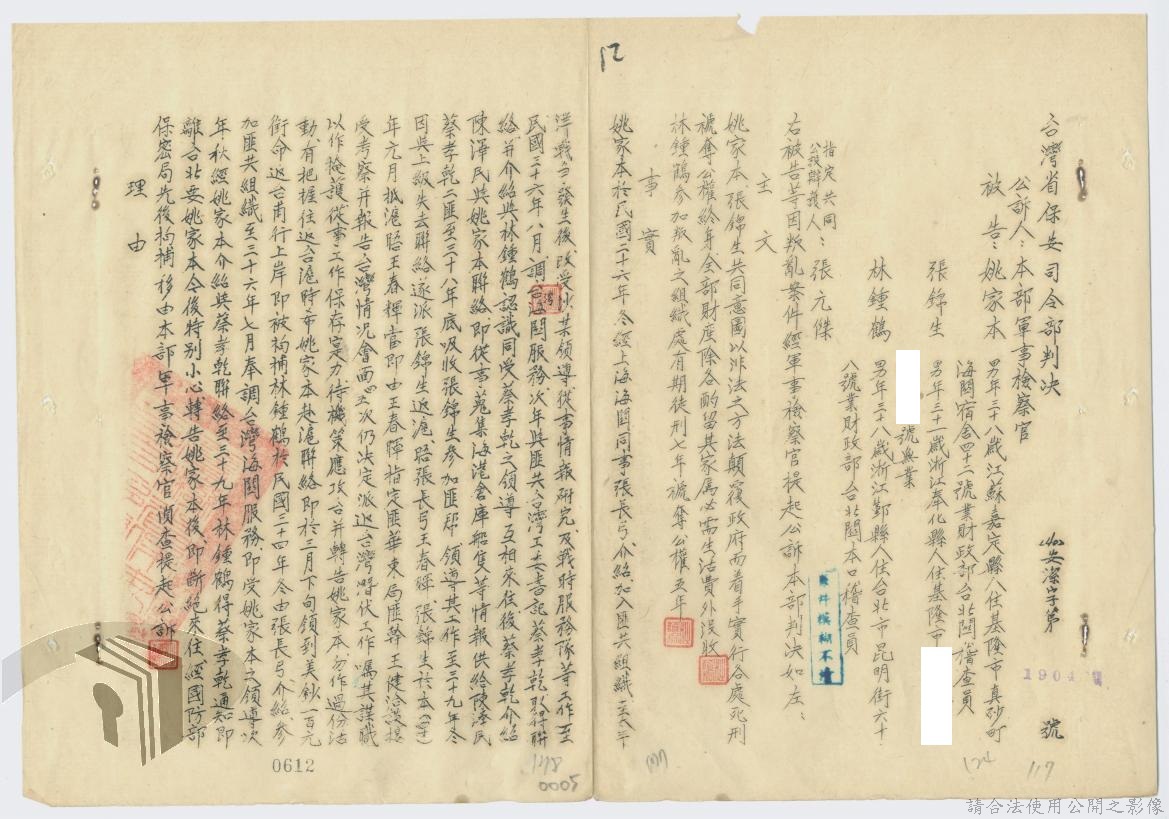 台灣省保安司令部判決
安潔字第 1904 號
公訴人：本部軍事檢察官
被告：姚家本 男年三十八歲江蘇嘉定縣人住基隆市真砂町
海關宿舍四十二號業財政部台北關稽查員
張錦生 男年三十一歲浙江奉化縣人住基隆市
號漁業
林鍾鶴 男年三十八歲浙江鄞縣人住台北市昆明街六十
八號業財政部台北關本口稽查員
指定共同
公設辯護人：張元傑
右被告等因叛亂案件經軍事檢察官提起公訴本部判決如左：
主文
姚家本張錦生共同意圖以非法之方法顛覆政府而着手實行各處死刑
褫奪公權終身全部財產除各酌留其家屬必需生活費外沒收
林鍾鶴參加叛亂之組織處有期徒刑七年褫奪公權五年
原件模糊不清
事實
姚家本於民國二十六年冬經上海海關同事張長弓介紹加入匪共組織
洋戰爭發生後改受 某領導從事情報研究及戰時服務隊等工作至
民國三十六年八月調台灣海關服務次年與匪共台灣工委書記蔡孝乾取得聯
絡并介紹與林鍾鶴認識同受蔡孝乾之領導互相來往後蔡孝乾介紹
陳澤民與姚家本聯絡即從事蒐集海港倉庫船隻等情報供給陳澤民
蔡孝乾二匪至三十八年底吸收張錦生參加匪幫領導其工作至三十九年冬
因與上級失去聯絡遂派張錦生返滬晤張長弓王春暉張錦生於本(四十)
年元月抵滬晤王春暉當即由王春暉指定匪華東局匪幹王健洽談接
受考察并報告台灣情況會面 次仍決定派返台灣潛伏工作囑其謀職
以作掩護從事工作保存定力待機策應攻台并轉告姚家本勿作過份活
動有把握住返台滬時命姚家本赴滬聯絡即於三月下旬領到美鈔一百元
銜命返台甫行上岸即被拘捕林鍾鶴於民國三十四年冬由張長弓介紹參
加匪共組織至三十六年七月奉調台灣海關服務即受姚家本之領導次
年秋經姚家本介紹與蔡孝乾聯絡至三十九年林鍾鶴得蔡孝乾通知即
離台北要姚家本今後特別小心轉告姚家本後即斷絕來往經國防部
保密局先後拘捕移由本部軍事檢察官偵查提起公訴
理由
117
124
177
178
0005
0612
請合法使用公開之影像